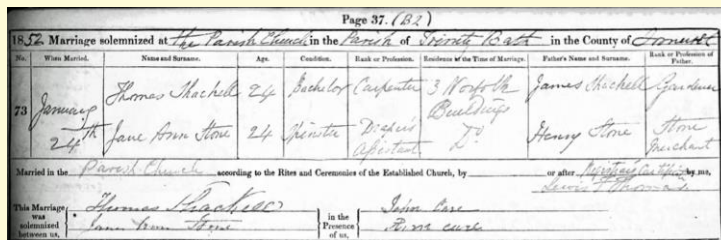 Page 37. (B2)
1852 Marriage solemnized at the Parish Church in the Parish of Trinity Bath in the County of Somerset
No. When Married. Name and Surname. Age. Condition. Rank or Profession. Residence at the Time of Marriage. Father's Name and Surname. Rank or Profession of Father.
73 January 24th Thomas Shackell 24 Bachelor Carpenter 3 Norfolk Buildings James Shackell Gardener
Jane Ann Stone 24 Spinster Draper's Assistant Do Henry Stone Stone Merchant
Married in the Parish Church according to the Rites and Ceremonies of the Established Church, by or after by me,
This Marriage was solemnized between us, Thomas Shackell in the Presence of us, John
Jane Ann Stone